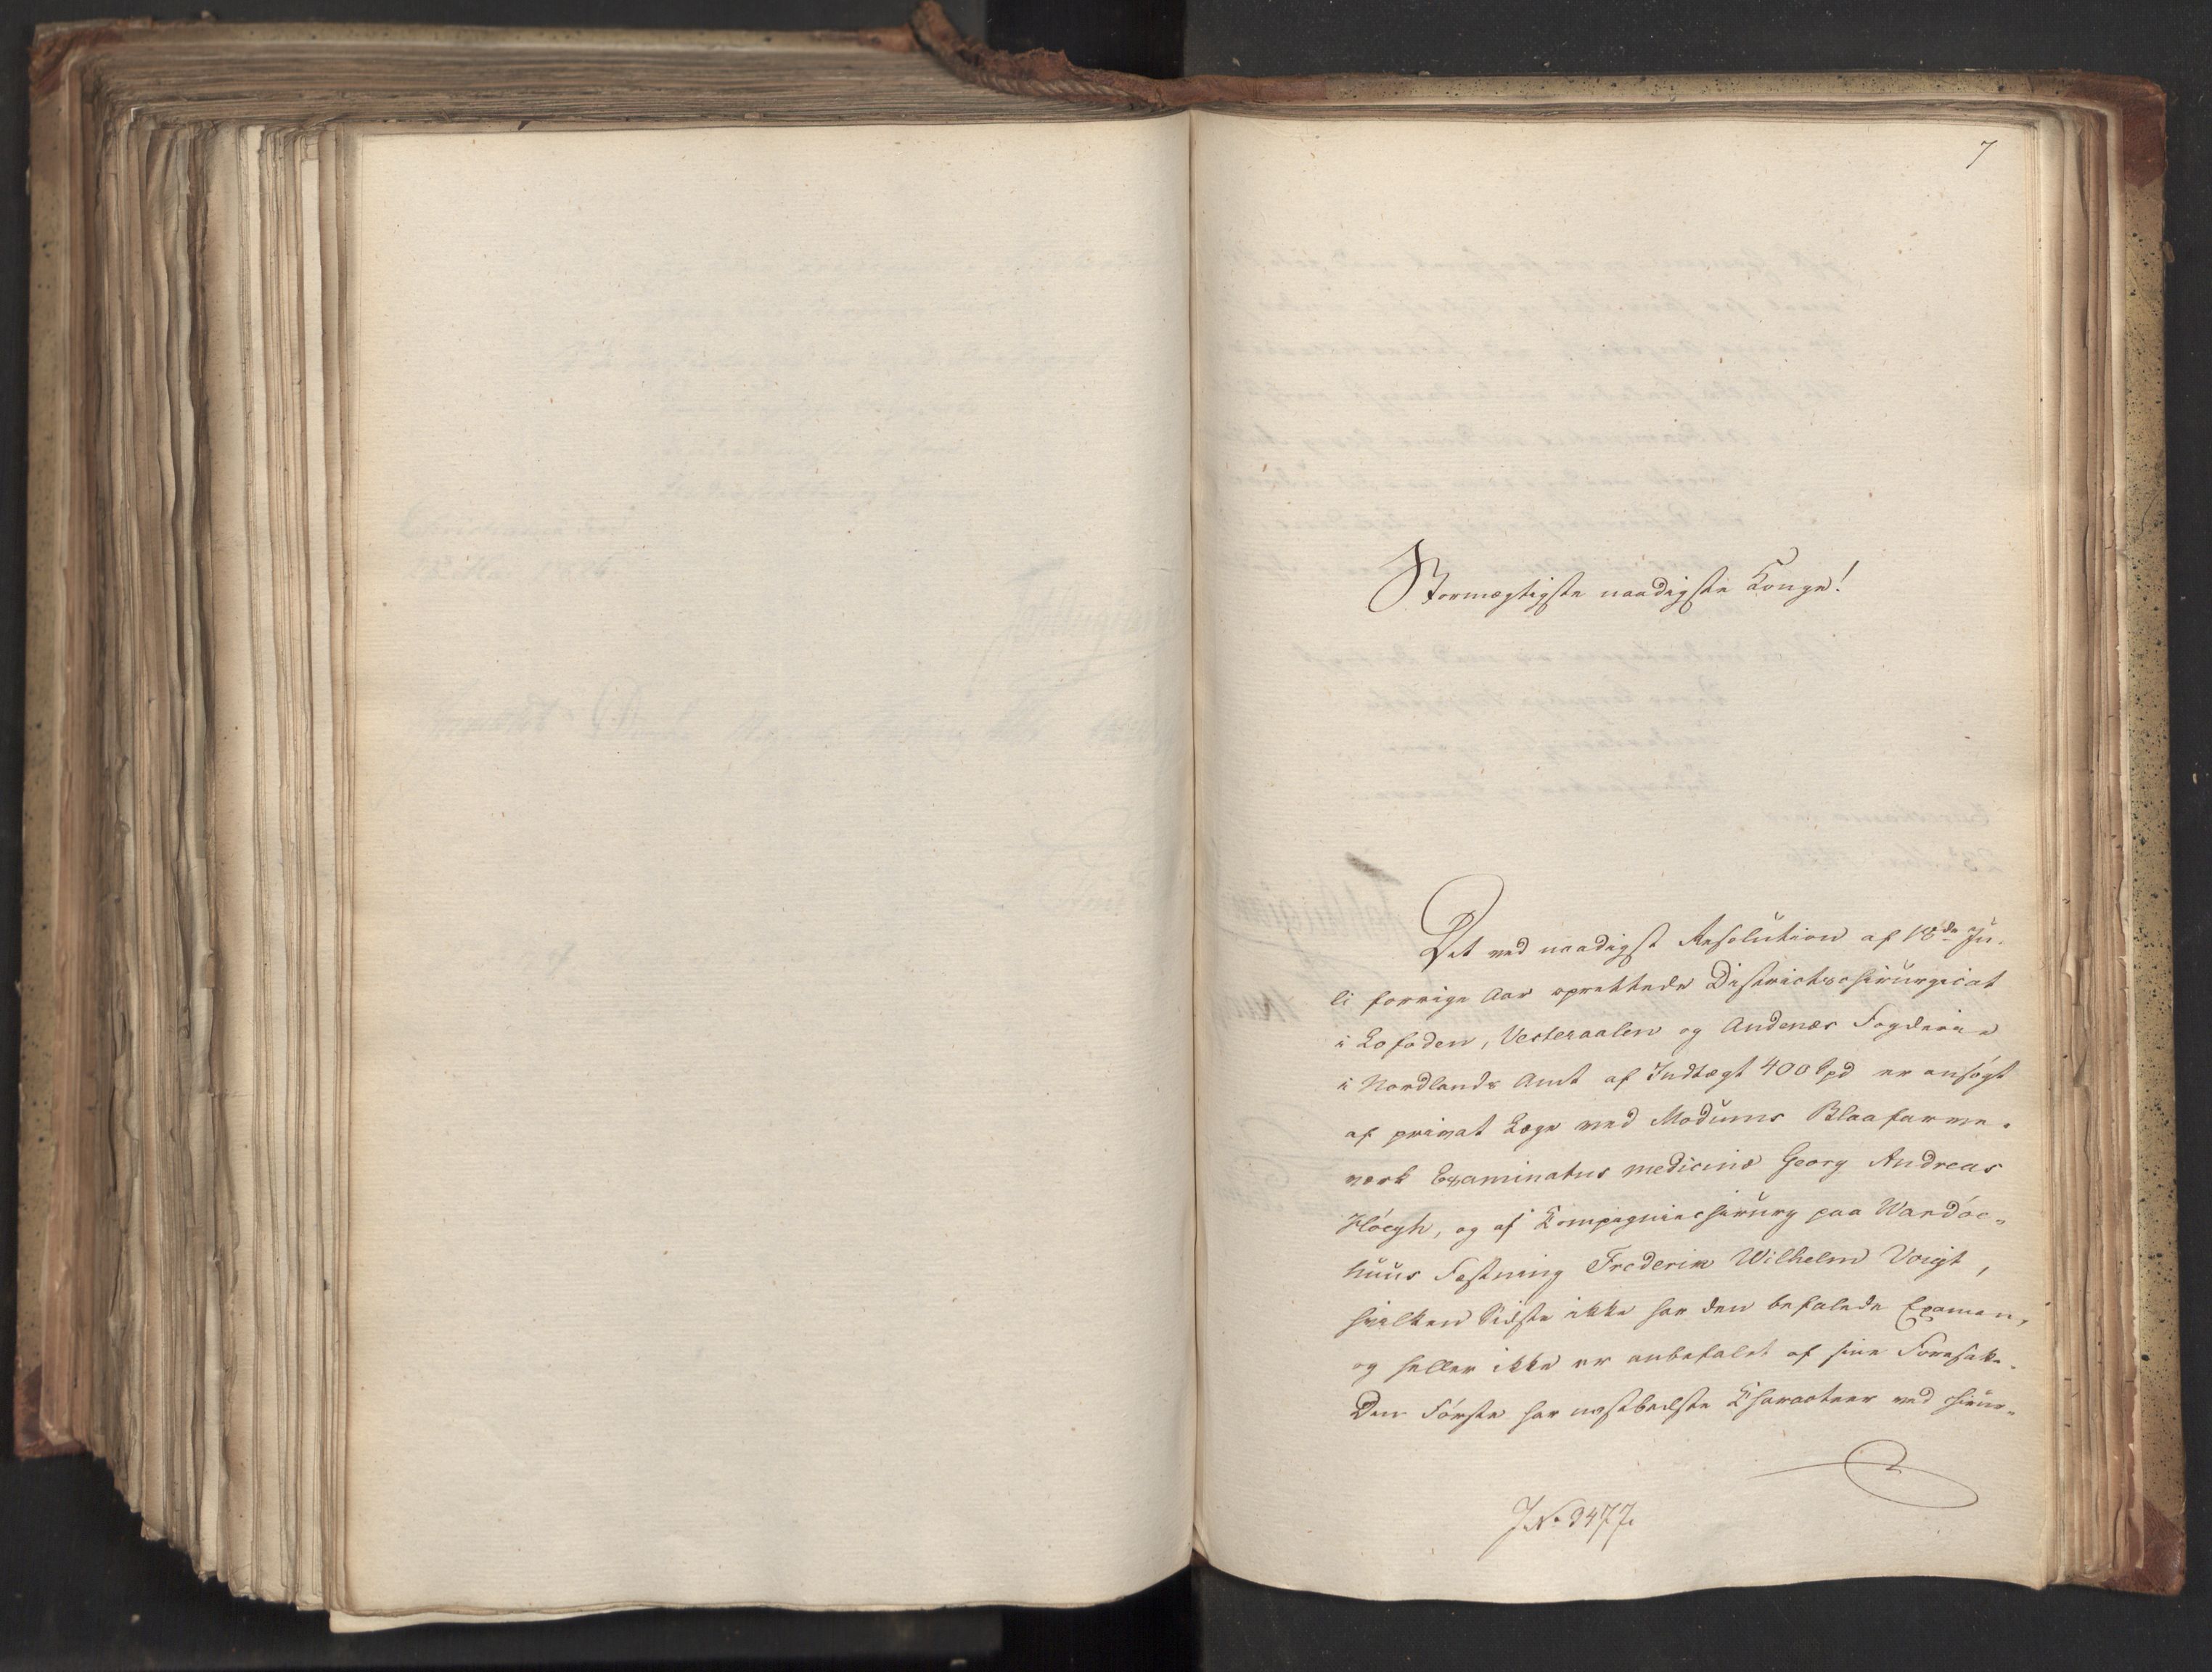 7
Stormægtigste naadigste Konge!
Det ved naadigst Resolution af 18de Ju-
li forrige Aar oprettede Districtschirurgicat
i Lofoden, Vesteraalen og Andenæs Fogderie
i Nordlands Amt af Indtægt 400 Spd er ansøgt
af privat Læge ved Modums Blaafarve-
værk Examinatus medicinæ Georg Andreas
Høegh, og af Kompagniechirurg paa Wardøe-
huus Fæstning Frederik Wilhelm Voigt,
hvilken Sidste ikke har den befalede Examen,
og heller ikke er anbefalet af sine Foresatte.
Den Første har næstbedste Charakteer ved chirur-
J.N. 3477.